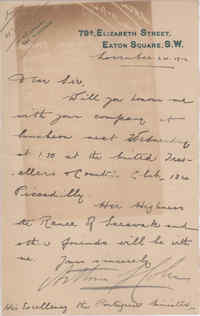 79A, ELIZABETH STREET,
EATON SQUARE, S.W.
November
Dear Sir,
Will you honour me
with your company at
luncheon next Wednesday
at 1.30 at the United
Club,
Piccadilly.
Her Highness
the Ranee of Sarawak and
other friends will be with
me.
Yours sincerely
Arthur
His Excellency the Portuguese Minister.